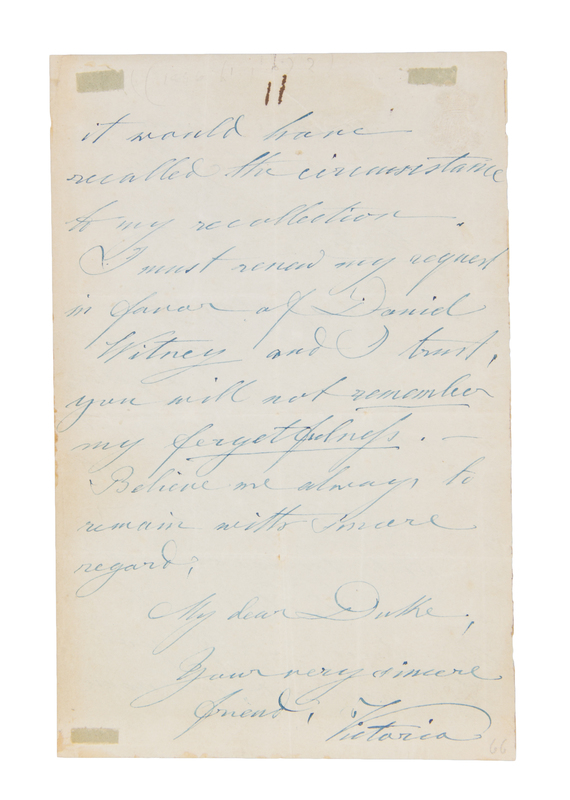 11
it would have
recalled the circumstance
to my recollection.
I must renew my request
in favor of David
Witney and I trust,
you will not remember
my forgetfulness. —
Believe me always to
remain with sincere
regard,
My dear Duke,
Your very sincere
friend, Victoria
66